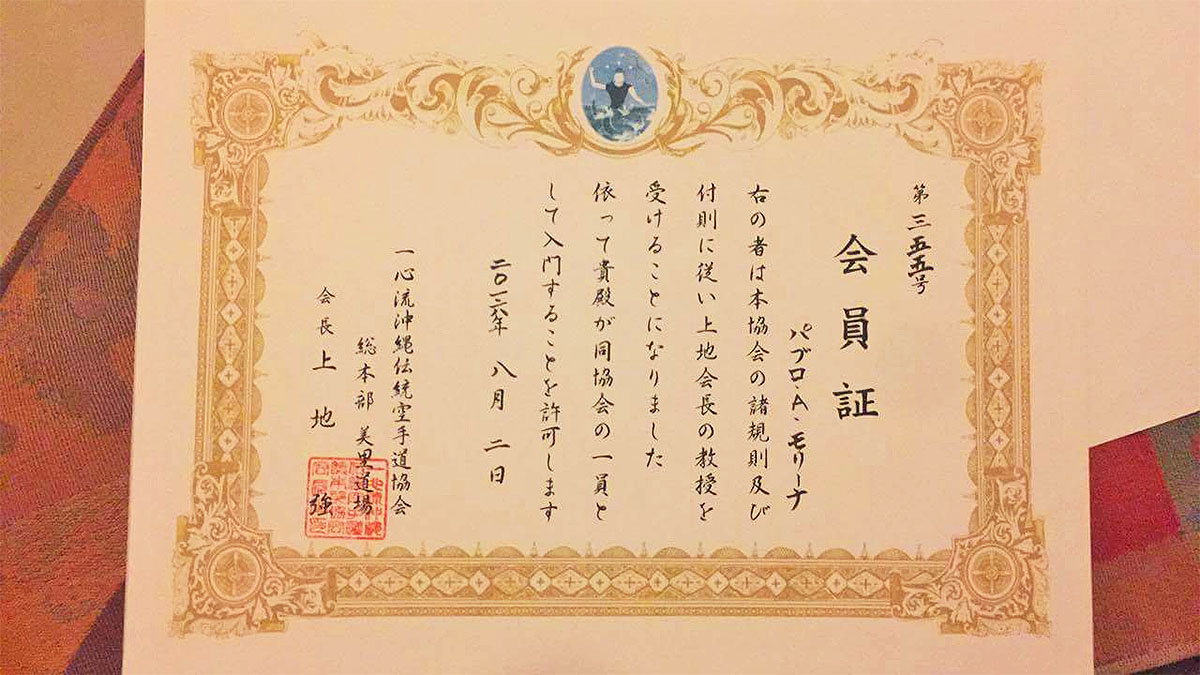 第三五五号
会員証
パブロ・A・モリーナ
右の者は本協会の諸規則及び
付則に従い上地会長の教授を
受けることになりました
依って貴殿が同協会の一員と
して入門することを許可します
二〇一六年 八月 二日
一心流沖縄伝統空手道協会
総本部 美里道場
会長 上地 強